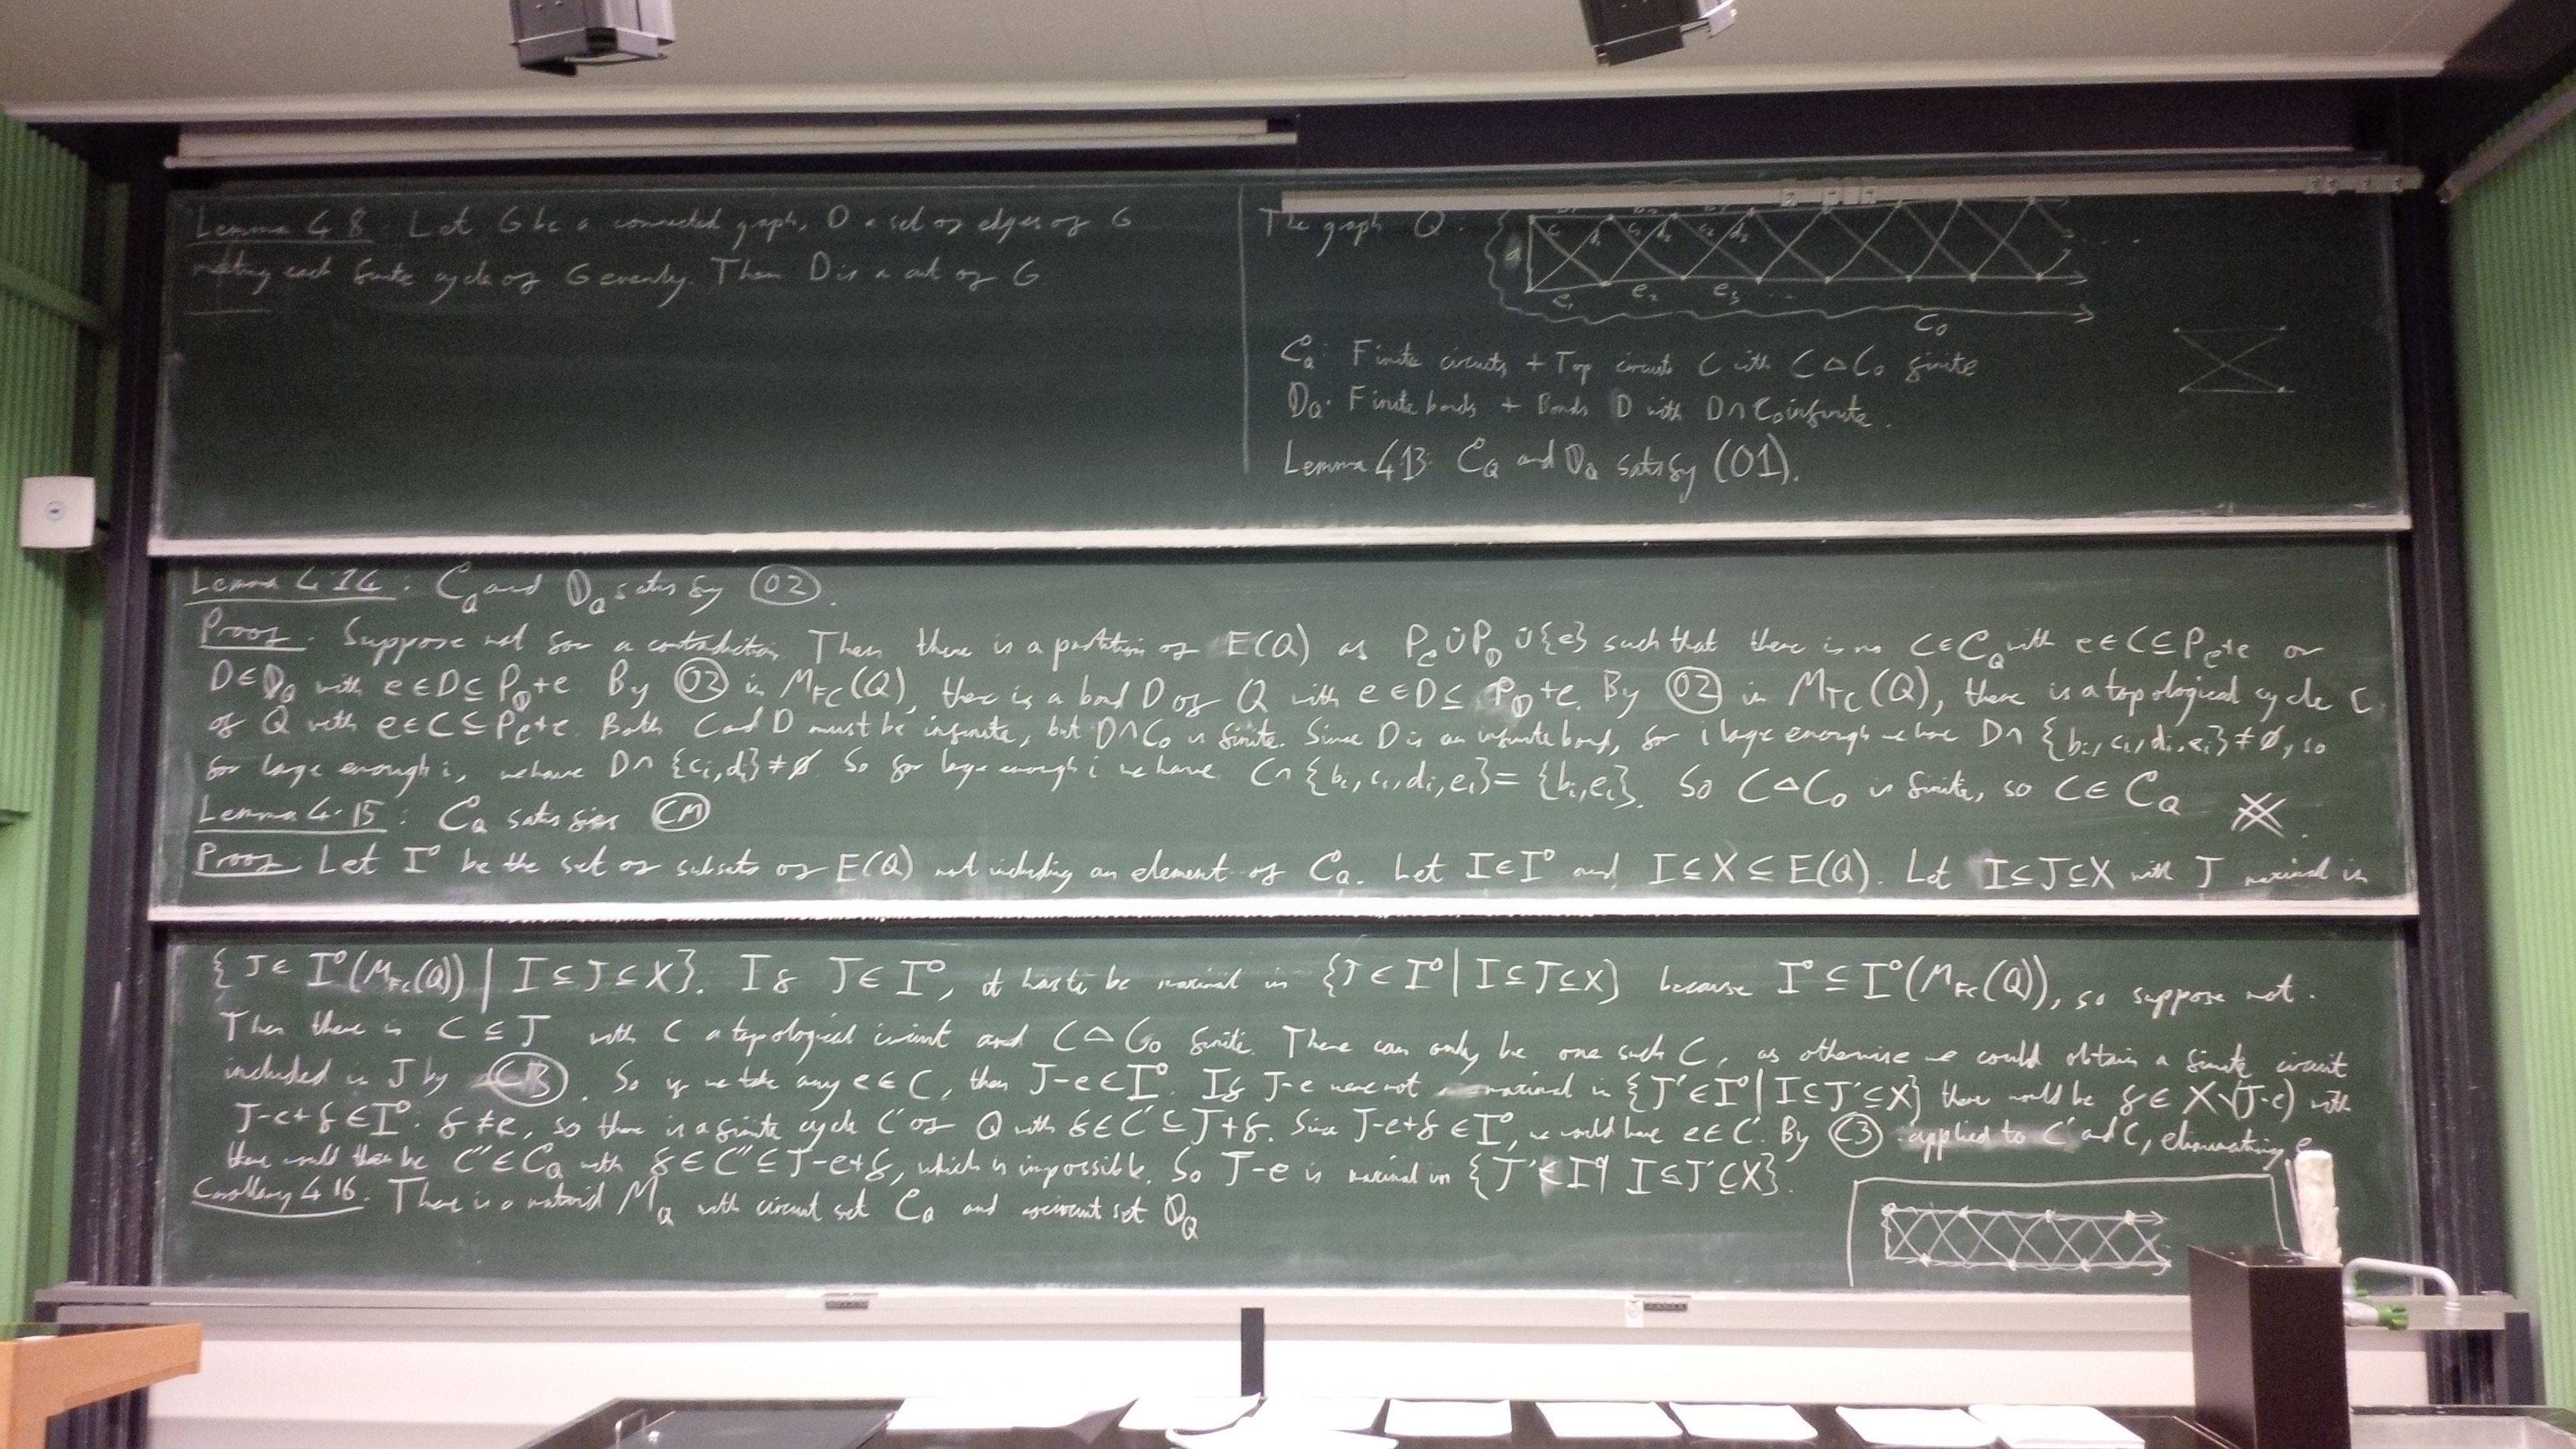 Lemma 4.8: Let G be a connected graph, D a set of edges of G
meeting each finite cycle of G evenly. Then D is a cut of G.
The graph Q:
a c₁ d₁ c₂ d₂ c₃ d₃
e₁ e₂ e₃ ...
C₀
C_Q: Finite circuits + Top circuits C with C △ C₀ finite
D_Q: Finite bonds + Bonds D with D ∩ C₀ infinite.
Lemma 4.13: C_Q and D_Q satisfy (O1).
Lemma 4.14: C_Q and D_Q satisfy (O2).
Proof. Suppose not for a contradiction. Then there is a partition of E(Q) as P_C ∪̇ P_D ∪̇ {e} such that there is no C ∈ C_Q with e ∈ C ⊆ P_C+e or
D ∈ D_Q with e ∈ D ⊆ P_D+e. By (O2) in M_FC(Q), there is a bond D of Q with e ∈ D ⊆ P_D+e. By (O2) in M_TC(Q), there is a topological cycle C
of Q with e ∈ C ⊆ P_C+e. Both C and D must be infinite, but D ∩ C₀ is finite. Since D is an infinite bond, for i large enough we have D ∩ {bᵢ, cᵢ, dᵢ, eᵢ} ≠ ∅, so
for large enough i, we have D ∩ {cᵢ, dᵢ} ≠ ∅. So for large enough i we have C ∩ {bᵢ, cᵢ, dᵢ, eᵢ} = {bᵢ, eᵢ}. So C △ C₀ is finite, so C ∈ C_Q ※.
Lemma 4.15: C_Q satisfies (CM)
Proof. Let I be the set of subsets of E(Q) not including an element of C_Q. Let I ∈ I and I ⊆ X ⊆ E(Q). Let I ⊆ J ⊆ X with J maximal in
{J ∈ I(M_FC(Q)) | I ⊆ J ⊆ X}. If J ∈ I, it has to be maximal in {J ∈ I | I ⊆ J ⊆ X} because I ⊆ I(M_FC(Q)), so suppose not.
Then there is C ⊆ J with C a topological circuit and C △ C₀ finite. There can only be one such C, as otherwise we could obtain a finite circuit
included in J by (C3). So if we take any e ∈ C, then J-e ∈ I. If J-e were not maximal in {J' ∈ I | I ⊆ J' ⊆ X} there would be f ∈ X \ (J-e) with
J-e+f ∈ I. f ≠ e, so there is a finite cycle C' of Q with f ∈ C' ⊆ J+f. Since J-e+f ∈ I, we would have e ∈ C'. By (C3) applied to C' and C, eliminating e
there would then be C'' ∈ C_Q with f ∈ C'' ⊆ J-e+f, which is impossible. So J-e is maximal in {J' ∈ I | I ⊆ J' ⊆ X}.
Corollary 4.16. There is a matroid M_Q with circuit set C_Q and cocircuit set D_Q